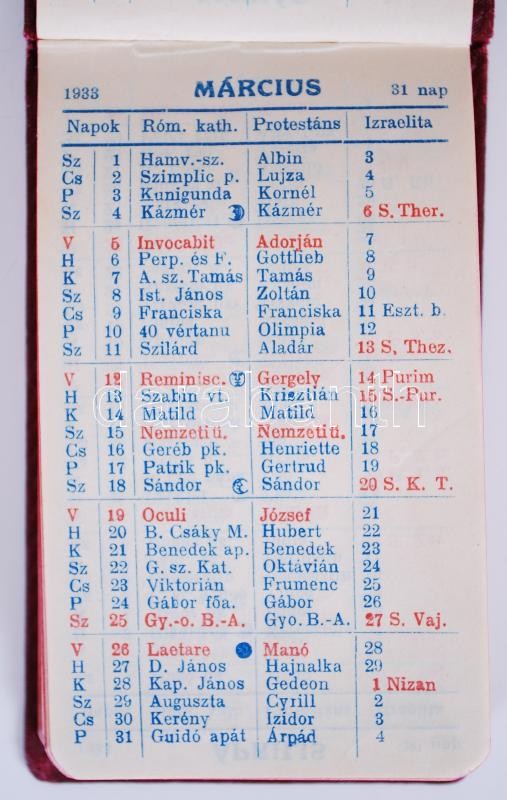 1933 MÁRCIUS 31 nap
Napok Róm. kath. Protestáns Izraelita
Sz 1 Hamv.-sz. Albin 3
Cs 2 Szimplic p. Lujza 4
P 3 Kunigunda Kornél 5
Sz 4 Kázmér Kázmér 6 S. Ther.
V 5 Invocabit Adorján 7
H 6 Perp. és F. Gottlieb 8
K 7 A. sz. Tamás Tamás 9
Sz 8 Ist. János Zoltán 10
Cs 9 Franciska Franciska 11 Eszt. b.
P 10 40 vértanu Olimpia 12
Sz 11 Szilárd Aladár 13 S, Thez.
V 12 Reminisc. Gergely 14 Purim
H 13 Szabin vt. Krisztián 15 S.-Pur.
K 14 Matild Matild 16
Sz 15 Nemzeti ü. Nemzeti ü. 17
Cs 16 Geréb pk. Henriette 18
P 17 Patrik pk. Gertrud 19
Sz 18 Sándor Sándor 20 S. K. T.
V 19 Oculi József 21
H 20 B. Csáky M. Hubert 22
K 21 Benedek ap. Benedek 23
Sz 22 G. sz. Kat. Oktávián 24
Cs 23 Viktorián Frumenc 25
P 24 Gábor főa. Gábor 26
Sz 25 Gy.-o. B.-A. Gyo. B.-A. 27 S. Vaj.
V 26 Laetare Manó 28
H 27 D. János Hajnalka 29
K 28 Kap. János Gedeon 1 Nizan
Sz 29 Auguszta Cyrill 2
Cs 30 Kerény Izidor 3
P 31 Guidó apát Árpád 4
darabanth